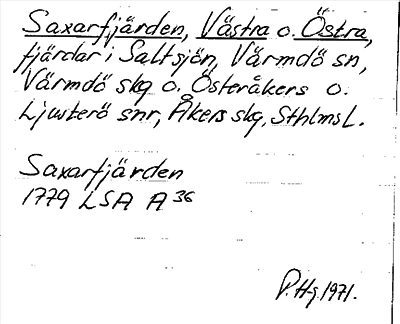 Saxarfjärden, Västra o. Östra,
fjärdar i Saltsjön, Värmdö sn,
Värmdö skg o. Österåkers o.
Ljusterö snr, Åkers skg, Sthlms L.
Saxarfjärden
1779 LSA A 36
P. Hg 1971.